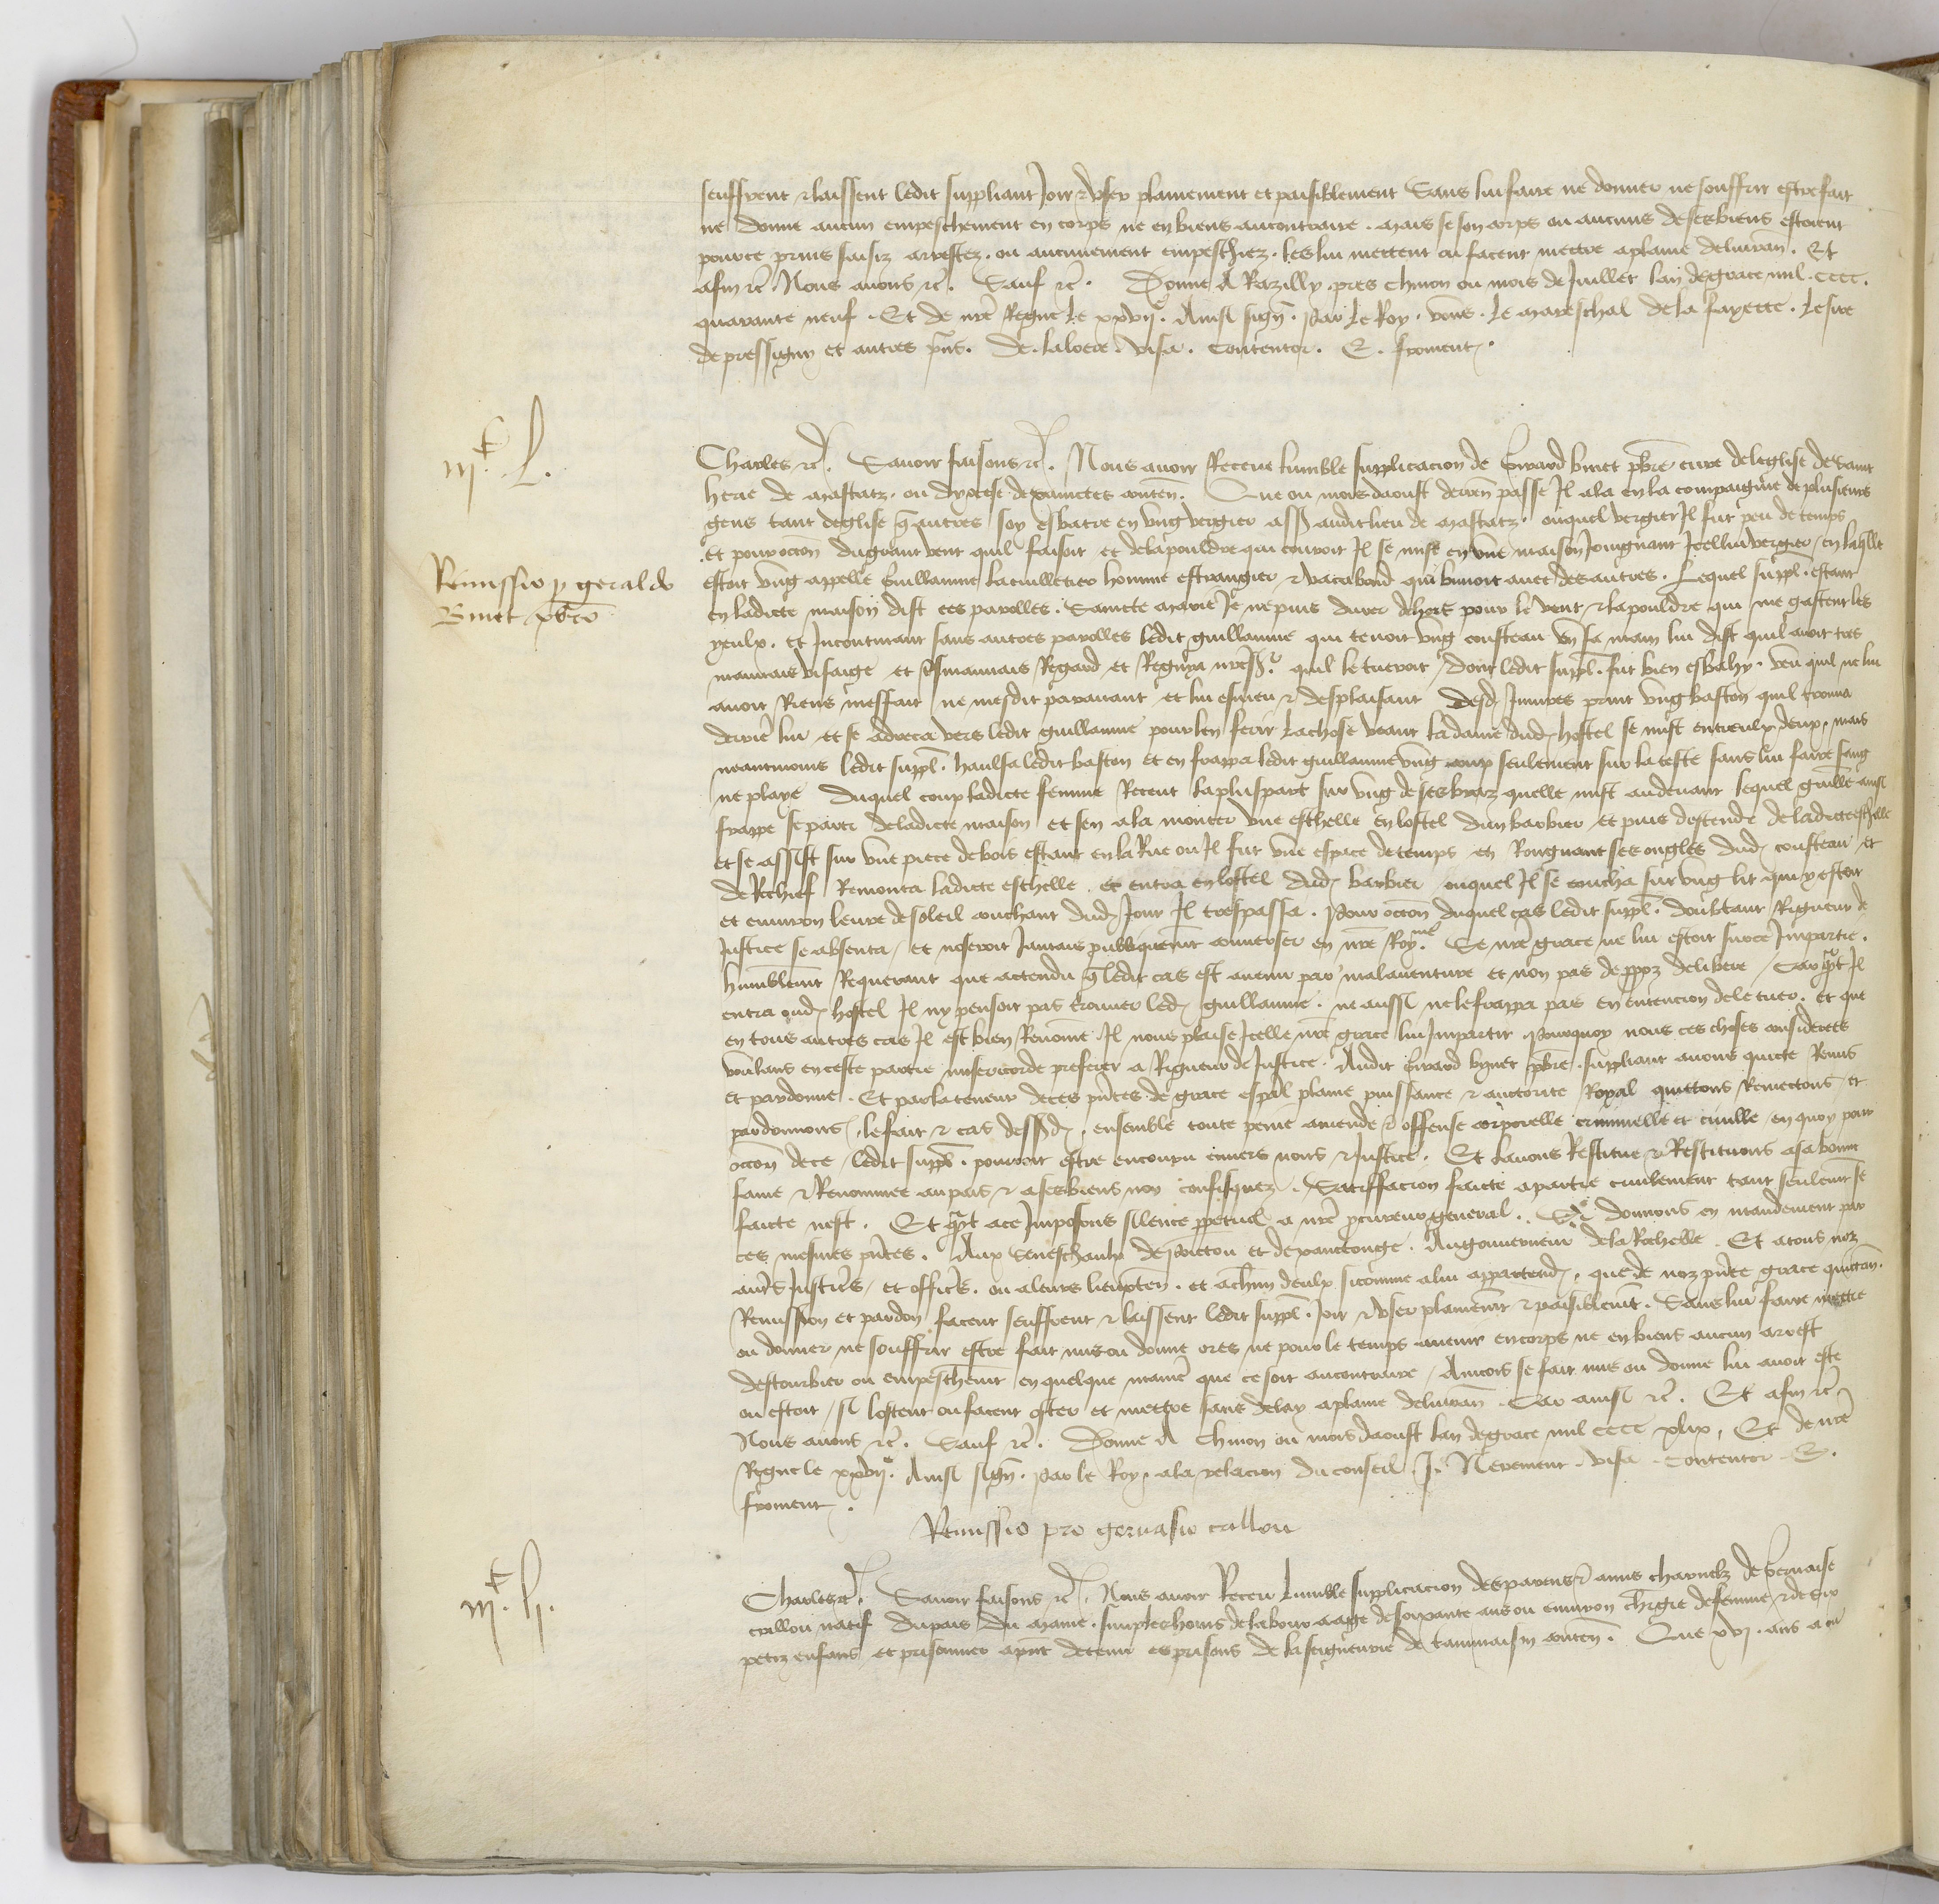 seuffrent & laissent ledit suppliant Joir & user plainement et paisiblement Sans lui faire ne donner ne souffrir estre fait
ne donne aucun empeschement en corps ne en biens au contraire . mais se son corps ou aucuns de ses biens estoient
pource prins saisiz arrestez . ou aucunement empeschez . les lui mettent ou facent mettre a plaine delivran . Et
afin &c Nous avons &c . Sauf &c . Donne A Razilly pres chinon ou mois de Juillet lan de grace mil . cccc .
quarante neuf . Et de nre Regne le xxvij e . Ainsi sign . Par le Roy . vous . le mareschal de la fayette . le sire
de pressigny et autres pns . De . la loere . visa . contentor . E . froment .
mt . L .
Charles &c . Savoir faisons &c . Nous avoir Receue lumble supplicacion de Girard binet pbre cure de leglise de saint
herie de mastatz . ou dyocese de xainctes conten . Que ou mois daoust derren passe Il ala en la compaignie de plusieurs
gens tant deglise q autres soy esbatre en ung vergier assis audit lieu de mastatz . ouquel vergier Il fut peu de temps
et pour occon du grant vent quil faisoit et de la pouldre qui couroit Il se mist en une maison Joingnant Icellui vergier / en laqlle
Remissio p geraldo
Binet pbro
estoit ung appelle Guillaume homme estrangier & vacabond qui buvoit avec des autres . Lequel suppl . estant
en ladicte maison dist ces parolles . Saincte marie Je ne puis durer dehors pour le vent & la pouldre qui me gastent les
yeulx . et Incontinant sans autres parolles ledit guillaume qui tenoit ung cousteau en sa main lui dist quil avoit tres
mauvais visaige et mauvais Regard et Regnya nress r quil le tueroit / dont ledit suppl . fut bien esbahy . veu quil ne lui
avoit Riens meffait ne mesdit paravant et lui esmeu & desplaisant desd Injures print ung baston quil trouva
derrie lui et se adreca vers ledit guillaume pour len ferir la chose veant la dame dud hostel se mist entreulx deux . mais
neantmoins ledit suppl . haulsa ledit baston et en frappa ledit guillaume ung coup seulement sur la teste sans lui faire sang
ne playe duquel coup ladicte femme Receut la pluspart sur ung de ses braz quelle mist au devant lequel guille ainsi
frappe se parti de ladicte maison et sen ala monter une eschelle en lostel dun barbier et puis descendi de ladicte eschelle
et se assist sur une piece de bois estant en la Rue ou Il fut une espace de temps en Rongnant ses ongles dud cousteau et
de Rechief Remonta ladicte eschelle et entra en lostel dud barbier ouquel Il se coucha sur ung lit qui y estoit
et environ leure de soleil couchant dud Jour Il trespassa . Pour occon duquel cas ledit suppl . doubtant Rigueur de
Justice se absenta / et noseroit Jamais publiquement converser en nre Roy me . Se nre grace ne lui estoit sur ce Impartie .
humblemt Requerant que actendu q ledit cas est avenu par malaventure et non pas de ppoz delibere / Car qnt Il
entra oud hostel Il ny pensoit pas trouver led guillaume . ne aussi ne le frappa pas en entencion de le tuer . et que
en tous autres cas Il est bien Renomme Il nous plaise Icelle nre grace lui Impartir . Pourquoy nous ces choses considerees
voulans en ceste partie misericorde preferer a Rigueur de Justice . Audit Girard bynet pbre . suppliant avons quicte Remis
et pardonne . Et par la teneur de ces pntes de grace espal plaine puissance & auctorite Royal quictons Remectons / et
pardonnons / le fait & cas dessusd . ensemble toute peine amende & offense corporelle criminelle et civille / en quoy pour
occon de ce / ledit suppl . pourroit estre encouru envers nous & Justice . Et lavons Restitue & Restituons a sa bonne
fame & Renommee au pais & a ses biens non confisquez . Satisfacion faicte a partie civilement tant seulemt se
faicte nest . Et qnt a ce Imposons silence ppetuel a nre procureur general . Si donnons en mandement par
ces mesmes pntes . Aux seneschaulx de poictou et de xanctonge . Au gouverneur de la Rochelle . Et a tous noz
autrs Justiciers / et officiers . ou a leurs lieuxten . et a chun deulx sicomme a lui appartendra . que de noz pnte grace quictan .
Remission et pardon facent seuffrent & laissent ledit suppl . Joir & user plainemt & paisiblemt . Sans lui faire mectre
ou donner ne souffrir estre fait mis ou donne ores ne pour le temps avenir en corps ne en biens aucun arrest
destourbier ou empeschemt en quelque manie que ce soit au contraire / Aincois se fait mis ou donne lui avoit este
ou estoit / si lostent ou facent oster et mettre sans delay a plaine delivran . Car ainsi &c . Et afin &c
Nous avons &c . Sauf &c . Donne A Chinon ou mois daoust lan de grace mil cccc xlix . Et de nre
Regne le xxvij e . Ainsi sign . par le Roy . a la relacion du conseil . J . Nevement . visa . contentor . E .
froment .
Remissio pro gervasio callou
mt . h .
Charles &c . Savoir faisons &c . Nous avoir Receu lumble supplicacion des parens & amis charnelz de Gervaise
callou natif du pais du maine . simples homs de labour aage de soixante ans ou environ chrgie de femme & de six
petiz enfans et prisonnier a pnt detenu es prisons de la seigneurie de conten . Que xvj . ans a ou